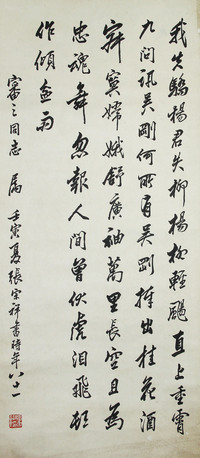 我失驕楊君失柳楊柳輕颺直上重霄
九問訊吳剛何所有吳剛捧出桂花酒
寂寞嫦娥舒廣袖萬里長空且為
忠魂舞忽報人間曾伏虎淚飛頓
作傾盆雨
審之同志屬 壬寅夏張宗祥書時年八十一